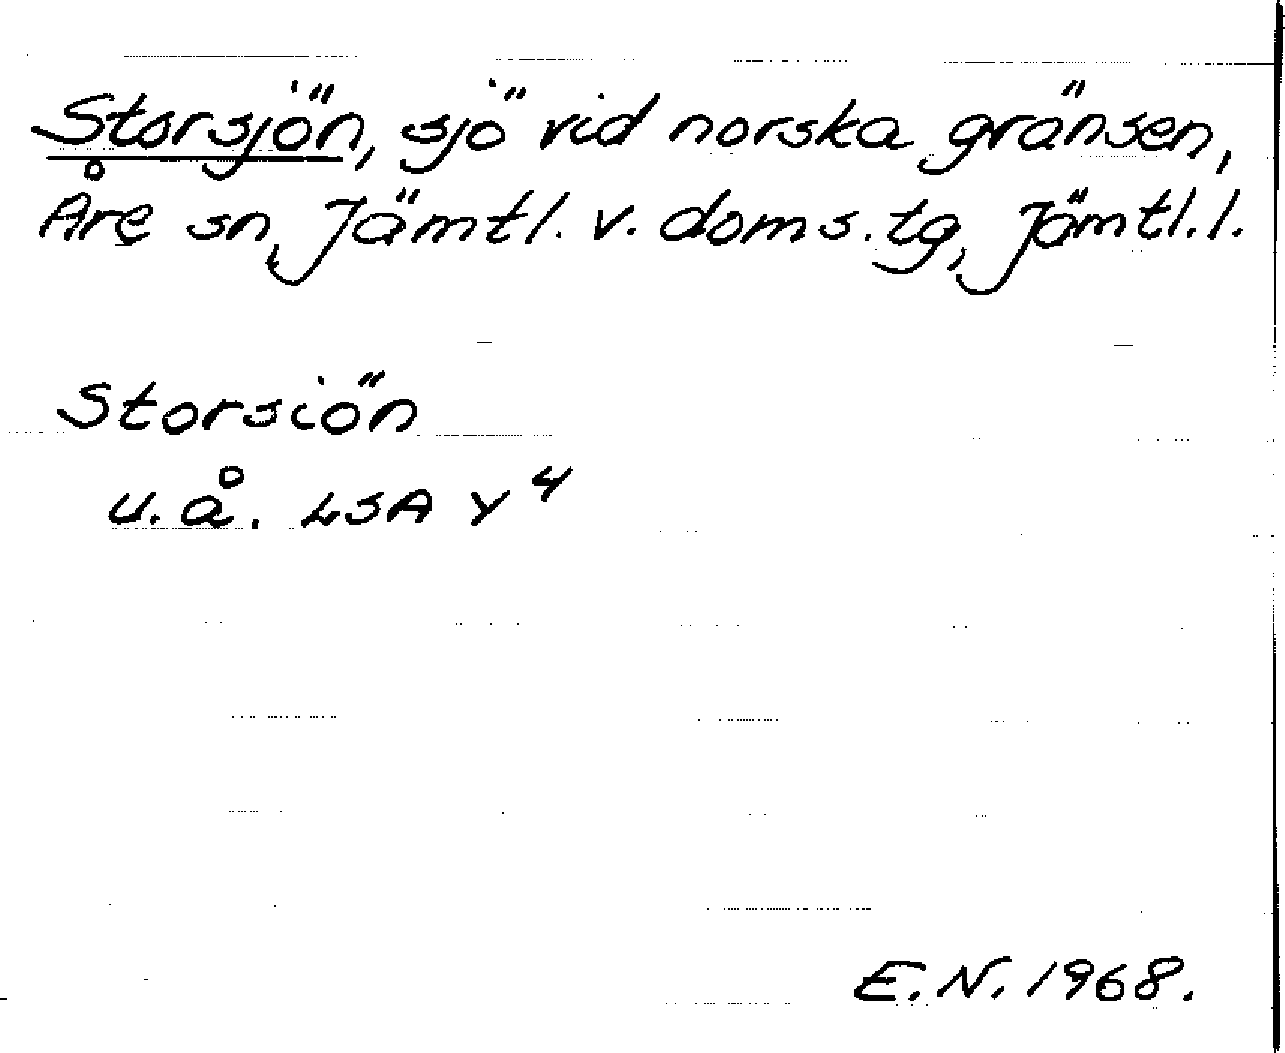 Storsjön, sjö vid norska gränsen,
Åre sn, Jämtl. v. doms.tg, Jämtl.l.
Storsiön
u.å. LSA Y⁴
E.N. 1968.